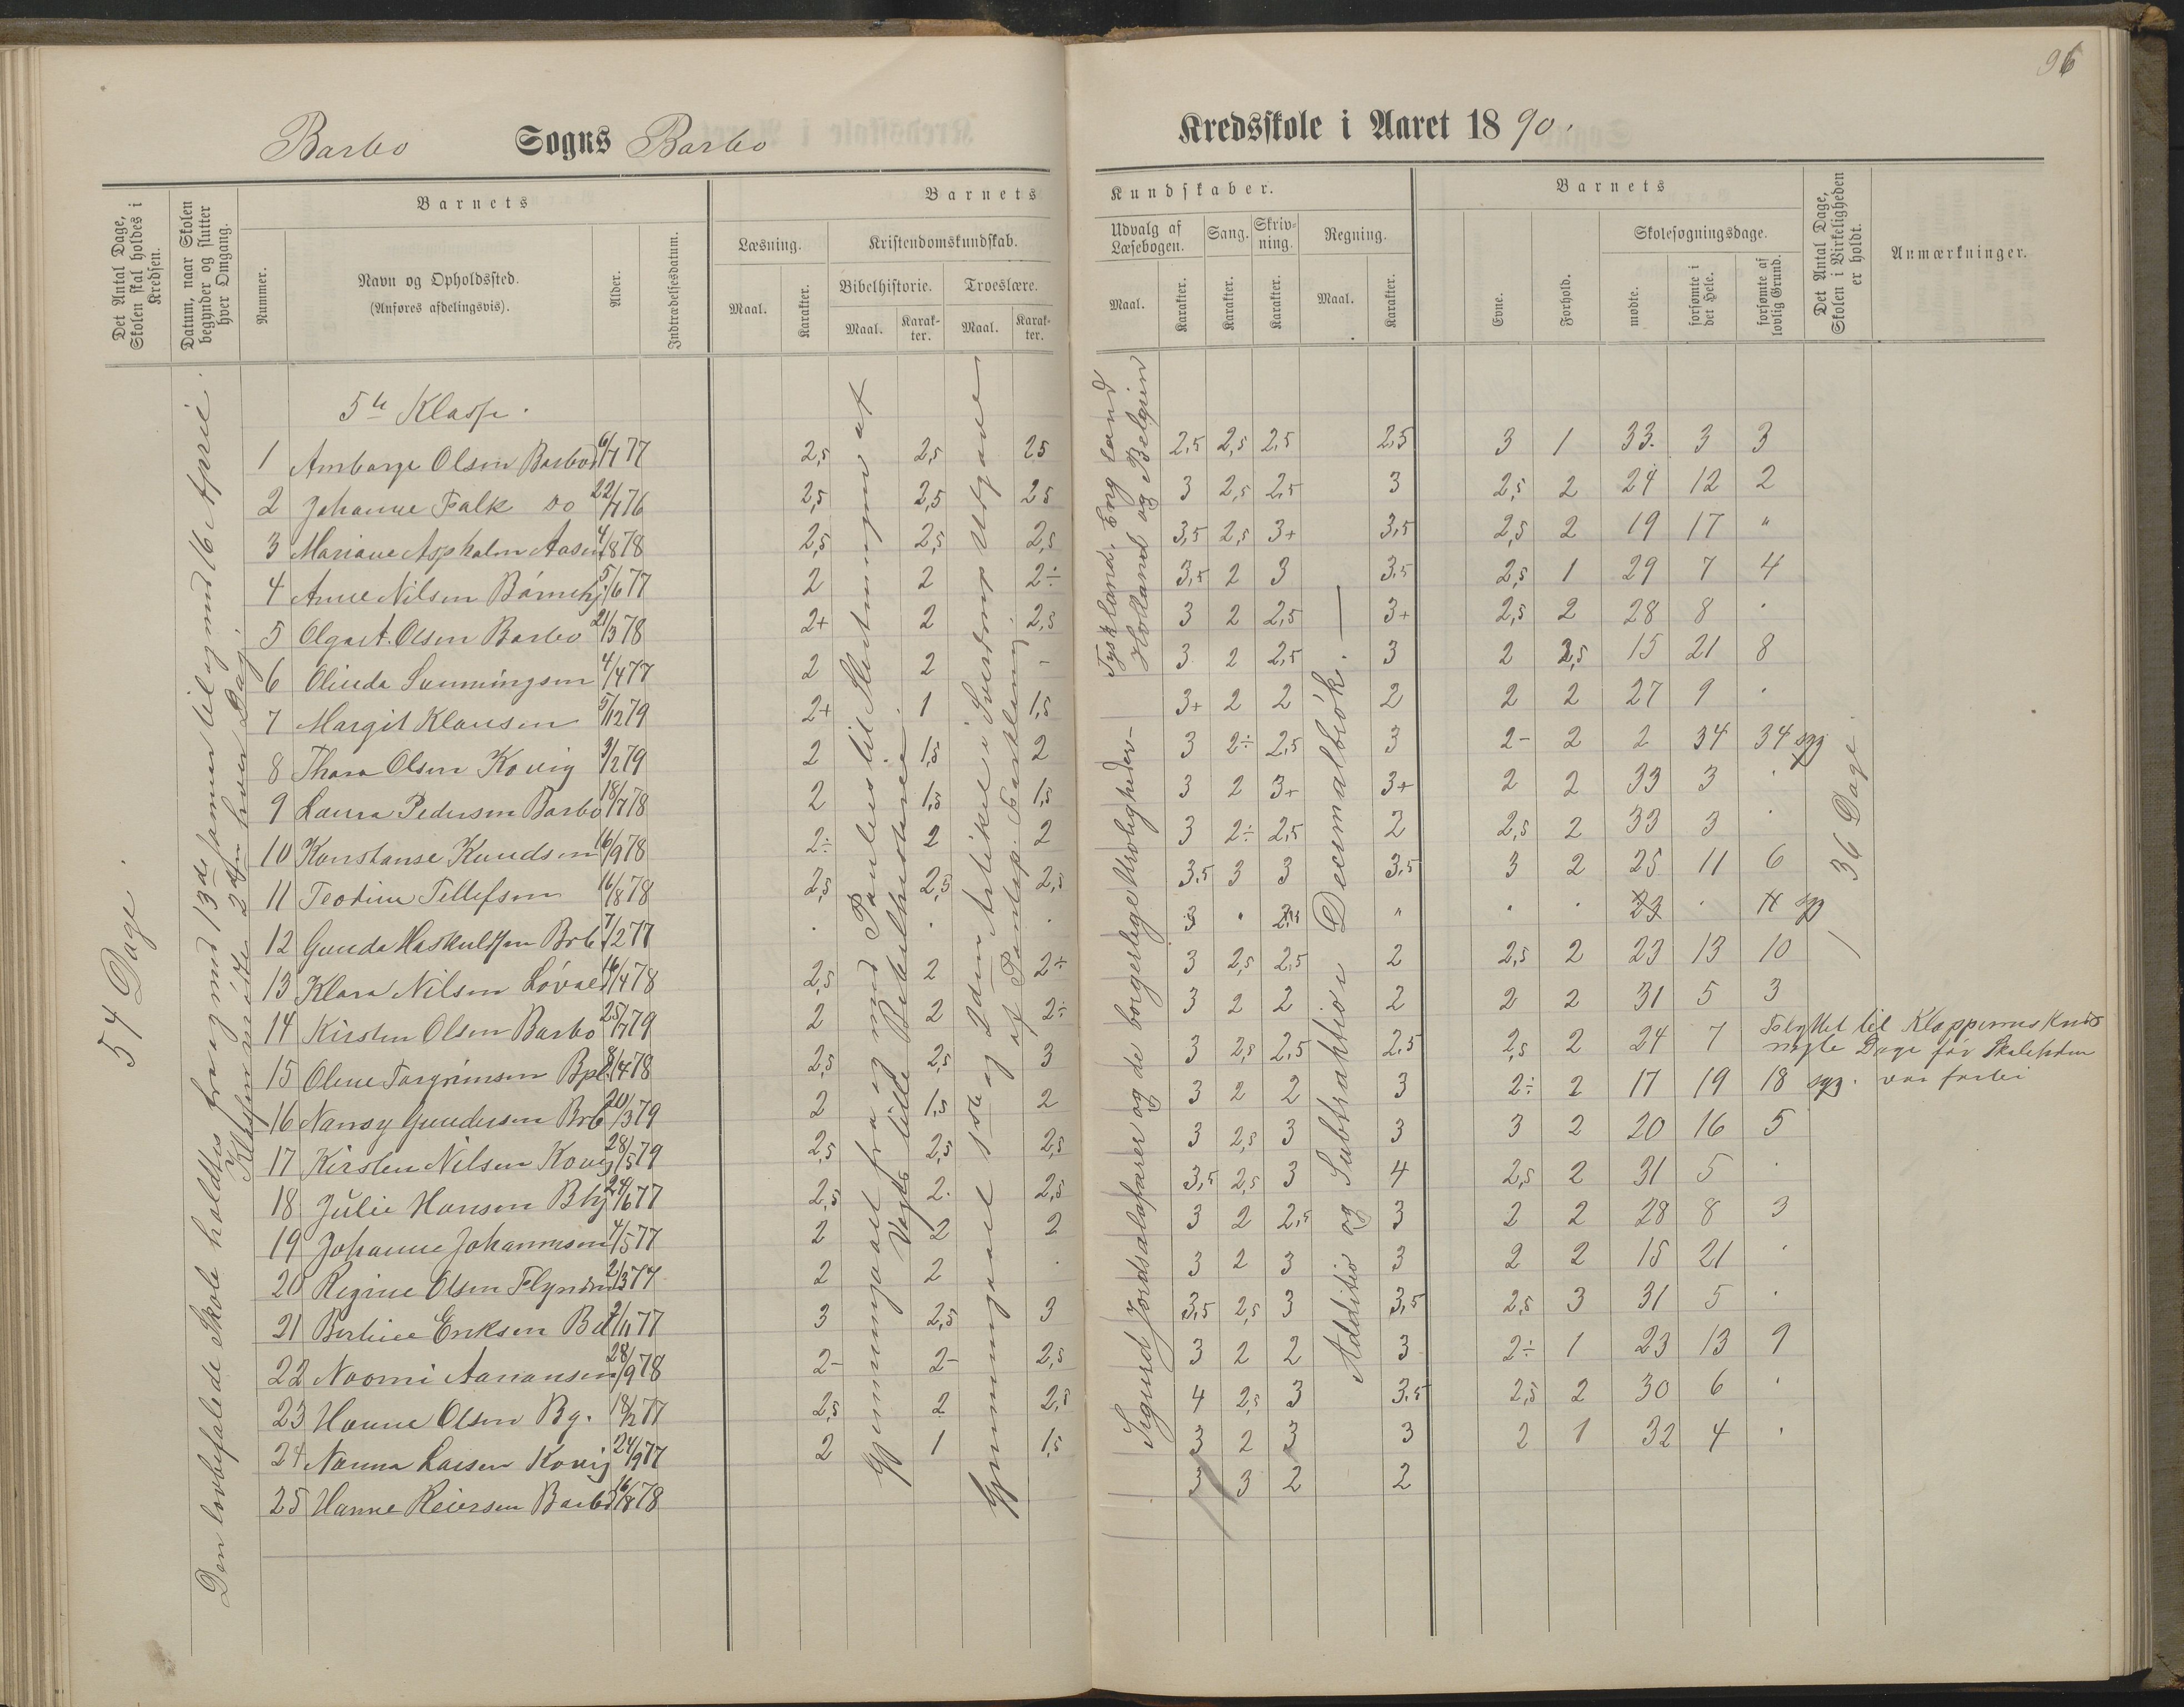 96
Barbo Sogns Barbo Kredsskole i Aaret 1890.
Det Antal Dage, Skolen skal holdes i Kredsen.
Datum, naar Skolen begynder og slutter hver Omgang.
Nummer.
Barnets
Navn og Opholdssted.
(Anføres afdelingsvis).
Alder.
Indtrædelsesdatum.
Barnets Kundskaber.
Læsning.
Maal.
Karakter.
Kristendomskundskab.
Bibelhistorie.
Maal.
Karakter.
Troeslære.
Maal.
Karakter.
Udvalg af Læsebogen.
Maal.
Karakter.
Sang.
Karakter.
Skrivning.
Karakter.
Regning.
Maal.
Karakter.
Barnets
Evne.
Forhold.
Skolesøgningsdage.
mødte.
forsømte i det Hele.
forsømte af lovlig Grund.
Det Antal Dage, Skolen i Virkeligheden er holdt.
Anmærkninger.
54 Dage.
Den lovbefalede Skole holdtes fra og med 13de Januar til og med 16 April.
Klassen mødte hver Dag.
Gjennemgaaet fra og med Paulus til Slutningen af
Vogts lille Bibelhistorie.
Gjennemgaaet 1ste og 2den Artikel i Sverdrups Udgave
af Pontop. Forklaring.
Sigurd Jorsalafarer og de borgerlige Uroligheder
Tyskland, England
Holland og Belgien
Addition og Subtraktion Decimalbrök.
36 Dage
5te Klasse.
1 Olsen Barbo 6/7 77 2,5 2,5 25 2,5 2,5 2,5 2,5 3 1 33. 3 3
2 Johanne Falk do 22/7 76 2,5 2,5 25 3 2,5 2,5 3 2,5 2 24 12 2
3 Mariane Aspholm Aasen 4/8 78 2,5 2,5 2,5 3,5 2,5 3+ 3,5 2,5 2 19 17 "
4 Anne Nilsen 5/6 77 2 2 2÷ 3,5 2 3 3,5 2,5 1 29 7 4
5 Olga A. Olsen Barbo 21/3 78 2+ 2 2,5 3 2 2,5 3+ 2,5 2 28 8 .
6 Olinda 4/4 77 2 2 - 3 2 2,5 3 2 2,5 15 21 8
7 Margit Klausen 5/12 79 2+ 1 1,5 3+ 2 2 2 2 2 27 9 .
8 Thora Olsen Kovig 3/2 79 2 1,5 2 3 2÷ 2,5 3 2- 2 2 34 34 syg
9 Laura Pedersen Barbo 18/7 78 2 1,5 1,5 3 2 3+ 3+ 2 2 33 3 .
10 Konstanse Knudsen 16/9 78 2÷ 2 2 3 2÷ 2,5 2 2,5 2 33 3 .
11 Teodine Tellefsen 16/8 78 2,5 2,5 2,5 3,5 3 3 3,5 3 2 25 11 6
12 Gunda Haskuldsen Brb 7/2 77 . . . 3 " " . . 23 . syg
13 Klara Nilsen Løvaas 16/4 78 2,5 2 2÷ 3 2,5 2,5 2 2,5 2 23 13 10
14 Kirsten Olsen Barbo 25/7 79 2 2 2÷ 3 2 2 2 2 2 31 5 3
15 Oline Torgrimsen 8/4 78 2,5 2,5 3 3 2,5 2,5 2,5 2,5 2 24 7 Flyttet til Kloppernes Kreds
nogle Dage før Skoletiden
var forbi
16 Nansy Gundersen Brb 20/3 79 2 1,5 2 3 2 2 3 2÷ 2 17 19 18 syg.
17 Kirsten Nilsen Kovig 28/5 79 2,5 2,5 2,5 3 2,5 3 3 3 2 20 16 5
18 Julie Hansen 24/6 77 2,5 2. 2,5 3,5 2,5 3 4 2,5 2 31 5 .
19 Johanne Johannesen 4/5 77 2 2 2 3 2 2,5 3 2 2 28 8 3
20 Regine Olsen 2/3 77 2 2 . 3 2 3 3 2 2 15 21 .
21 Bertine Eriksen 2/11 77 3 2,5 3 3,5 2,5 3 3,5 2,5 3 31 5 .
22 Noomi Aanonsen 28/9 78 2- 2- 2,5 3 2 2 3 2÷ 1 23 13 9
23 Hanna Olsen Bg. 18/2 77 2,5 2 2,5 4 2,5 3 3,5 2,5 2 30 6 .
24 Nanna Larsen Kovig 24/9 77 2 1 1,5 3 2 3 3 2 1 32 4 .
25 Hanne Reiersen Barbo 16/8 78 3 3 2 2